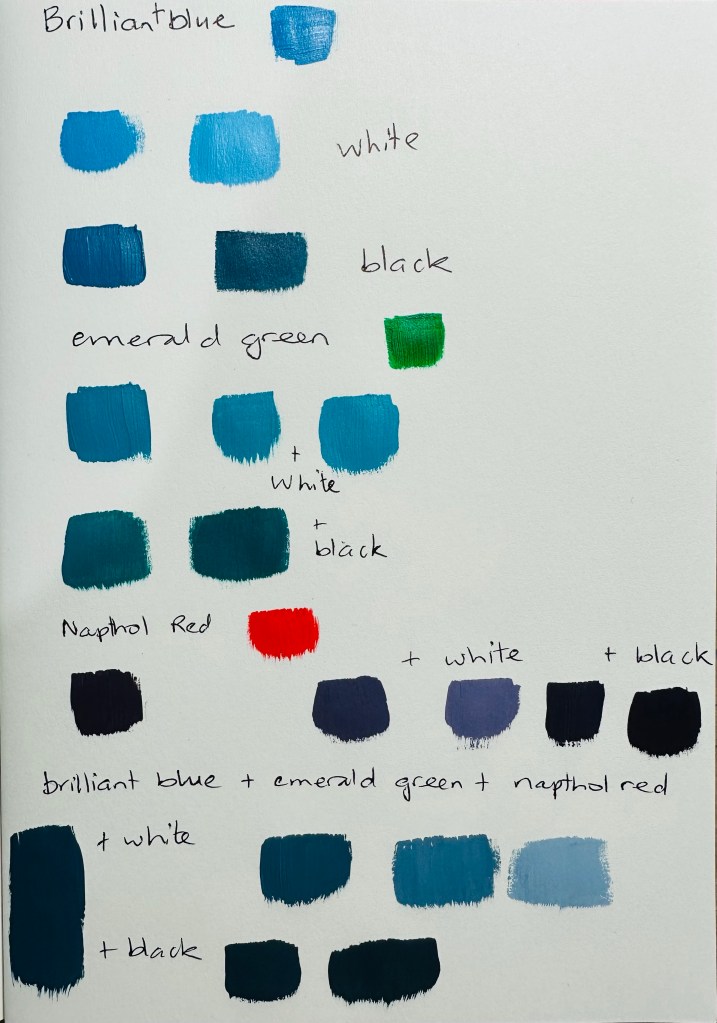 Brilliant blue
white
black
emerald green
+
white
+
black
Napthol Red
+ white + black
brilliant blue + emerald green + napthol red
+ white
+ black